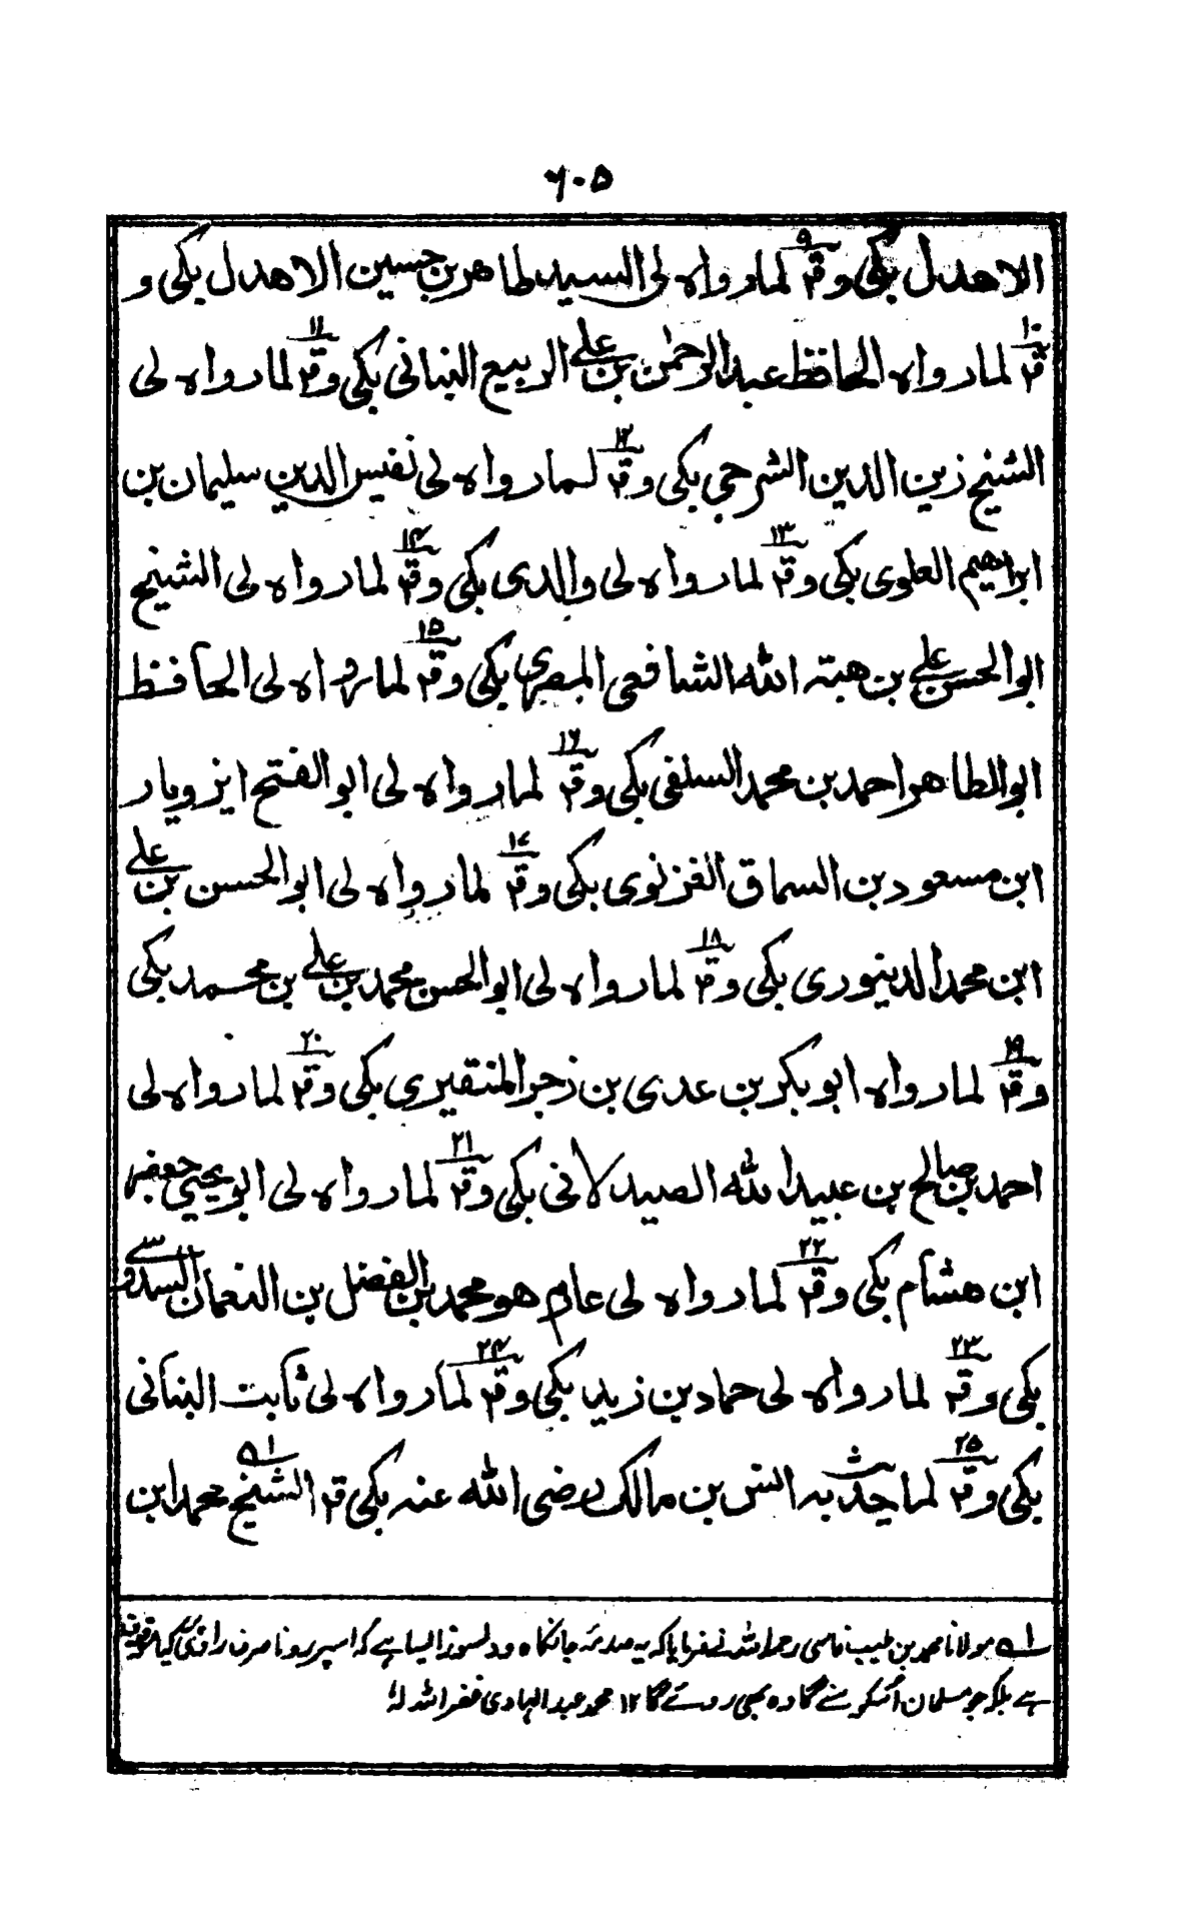 ٦٠٥
الاهدل بكى وقد٩ لما رواه لى السيد طاهر بن حسين الاهدل بكى و
قد١٠ لما رواه الحافظ عبد الرحمٰن بن على الربيع البنانى بكى وقد١١ لما رواه لى
الشيخ زين الدين الشرجى بكى وقد١٢ لما رواه لى نفيس الدين سليمان بن
ابراهيم العلوى بكى وقد١٣ لما رواه لى والدى بكى وقد١٤ لما رواه لى الشيخ
ابو الحسن على بن هبته الله الشافعى المصرى بكى وقد١٥ لما رواه لى الحافظ
ابو الطاهر احمد بن محمد السلفى بكى وقد١٦ لما رواه لى ابو الفتح ايزويار
ابن مسعود بن السماق الغزنوى بكى وقد١٧ لما رواه لى ابو الحسن بن على
ابن محمد الدينورى بكى وقد١٨ لما رواه لى ابو الحسن محمد بن على بن محمد بكى
وقد١٩ لما رواه ابو بكر بن عدى بن زجر المنقيرى بكى وقد٢٠ لما رواه لى
احمد بن صالح بن عبيد الله الصيدلانى بكى وقد٢١ لما رواه لى ابو يحيى جعفر
ابن هشام بكى وقد٢٢ لما رواه لى عارم هو محمد بن الفضل بن النعمان السدوسى
بكى وقد٢٣ لما رواه لى حماد بن زيد بكى وقد٢٤ لما رواه لى ثابت البنانى
بكى وقد٢٥ لما حدث به انس بن مالك رضى الله عنه بكى قد الشيخ ا؎ محمد ابن
ا؎ مولانا محمد بن طيب فاسى رحمه الله نے فرمایا کہ یہ صدمۂ جانکاہ و دلسوز ایسا ہے کہ اسپر رونا صرف راوی کیا
ہے بلکہ جو مسلمان اسکو سنے گا وہ بھی روئے گا ١٢ محمد عبد الہادی غفر اللہ لہٗ